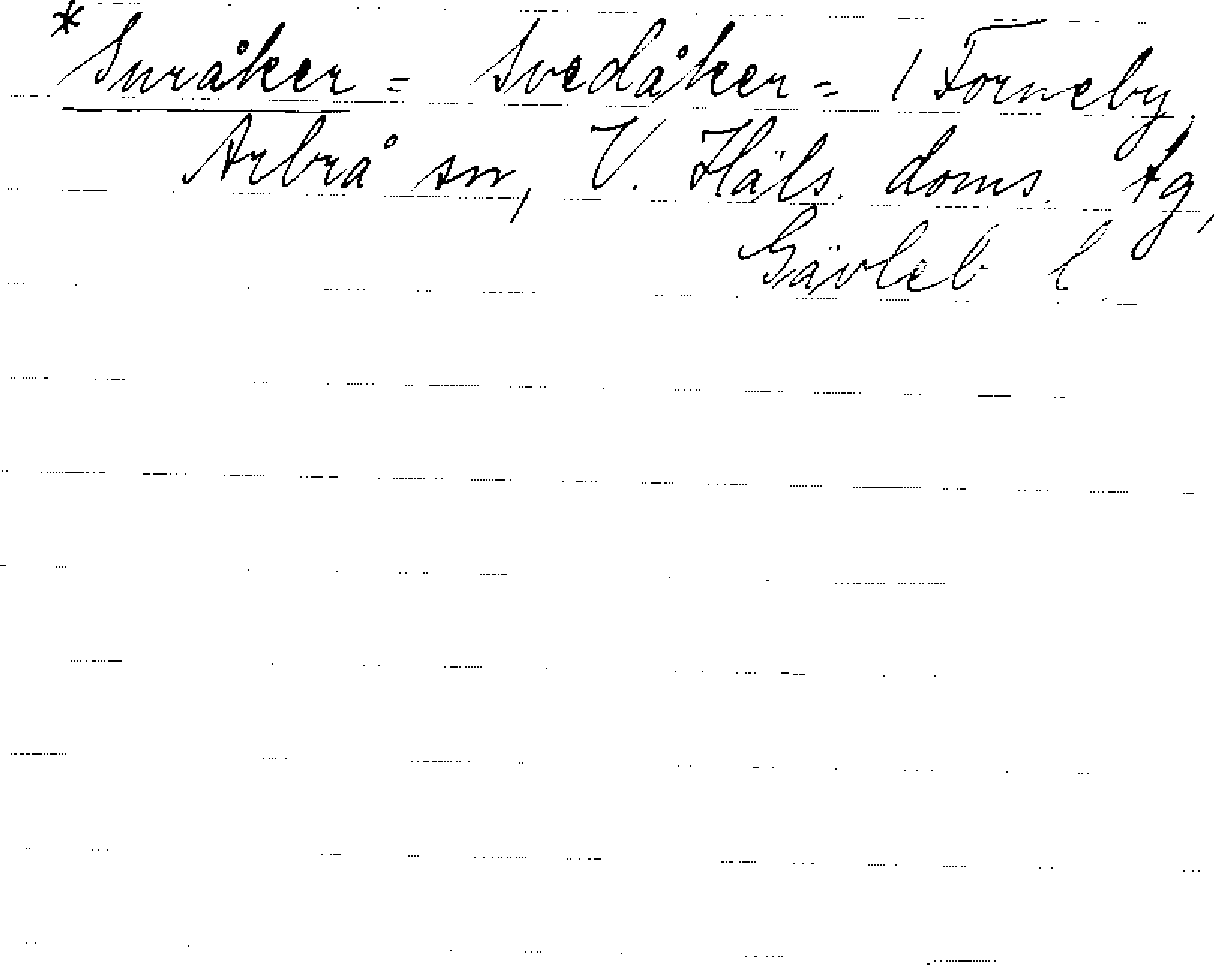 *Snråker = Svedåker = 1 Forneby,
Arbrå sn, V. Häls. doms. tg,
Gävleb l